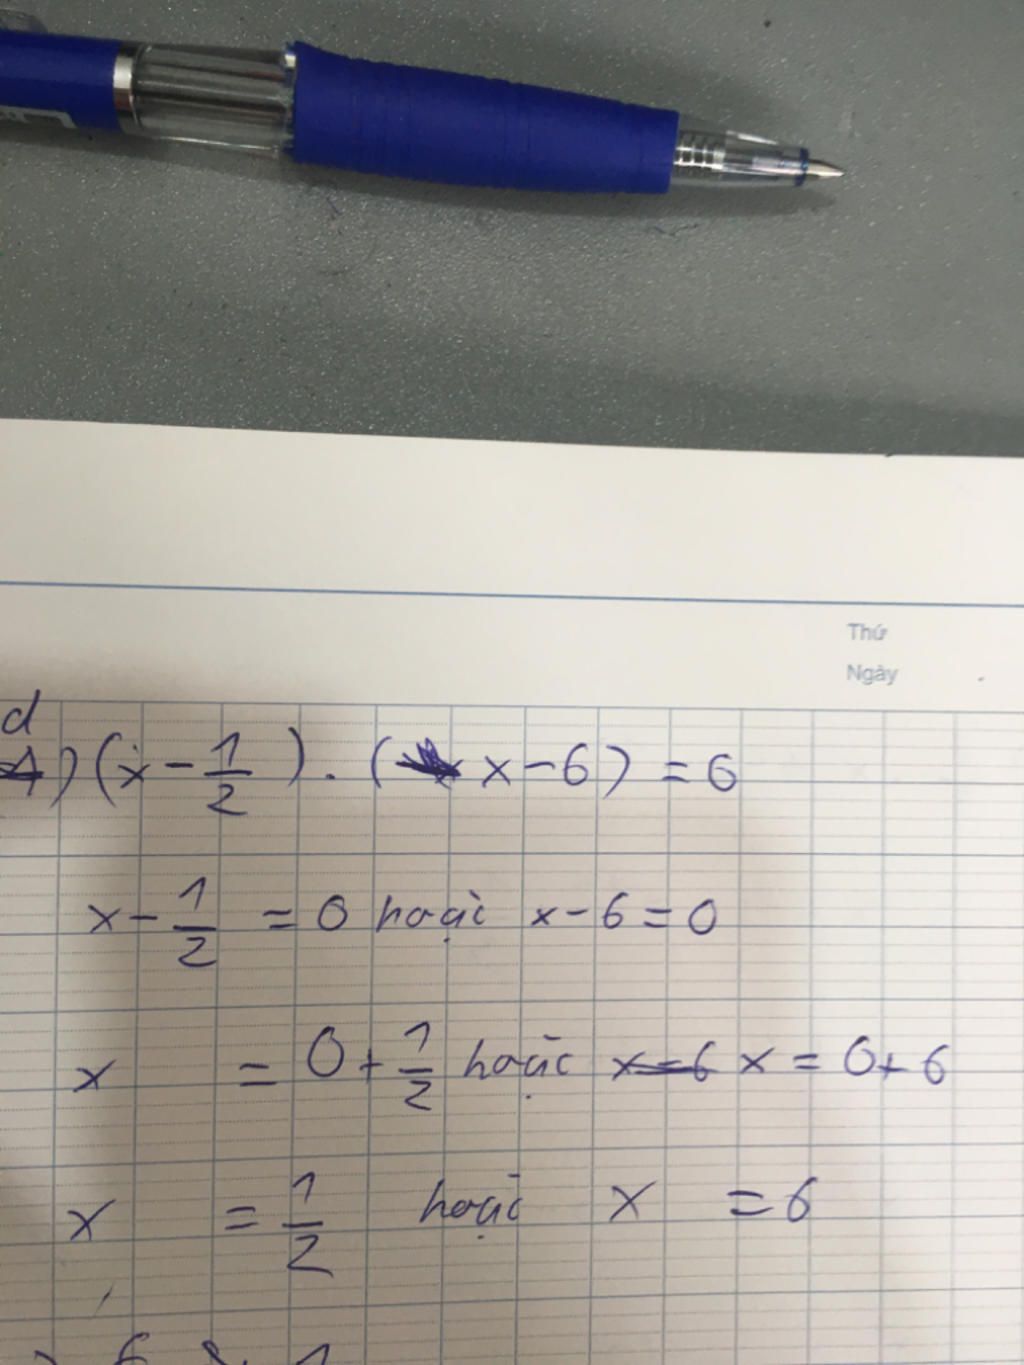 Thứ
Ngày
d
4) (x - 1/2) . (x - 6) = 6
x - 1/2 = 0 hoặc x - 6 = 0
x = 0 + 1/2 hoặc x - 6 x = 0 + 6
x = 1/2 hoặc x = 6